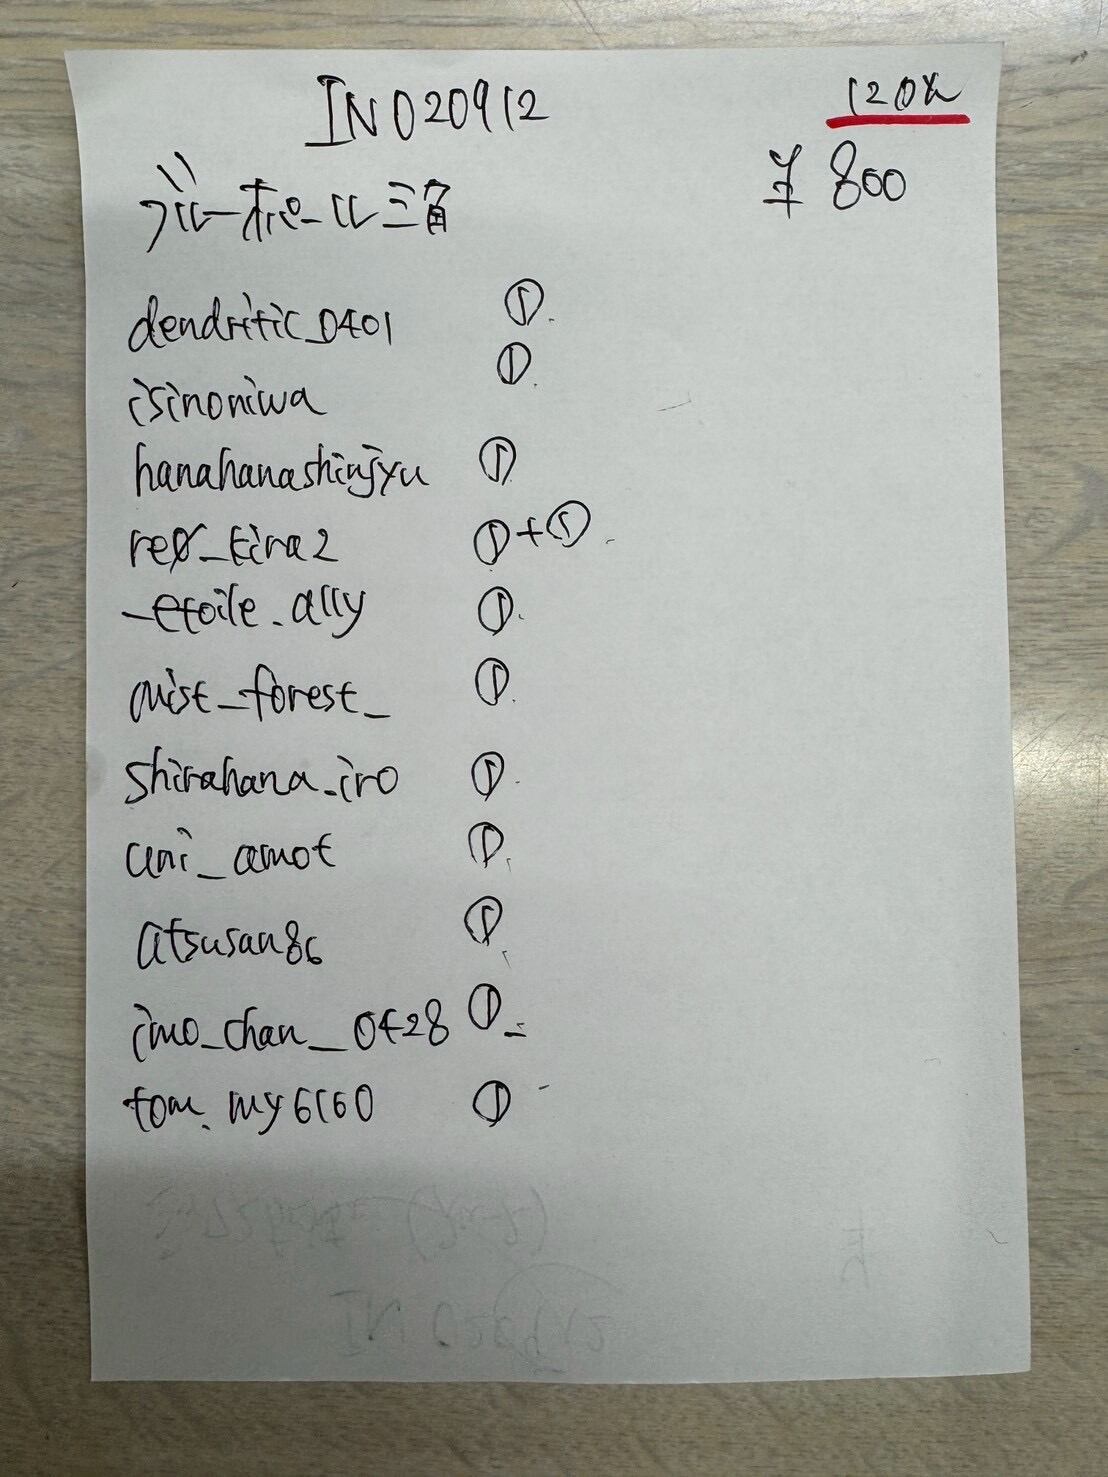 IN020912
120%
¥800
ブルーオパール三角
dendritic_0401 ①
isinoniwa ①
hanahanashinjyu ①
re0_kira2 ①+①
_etoile.ally ①
mist_forest_ ①
shirahana.iro ①
uni_amot ①
atsusan86 ①
imo_chan__0428 ①
tom.my6160 ①